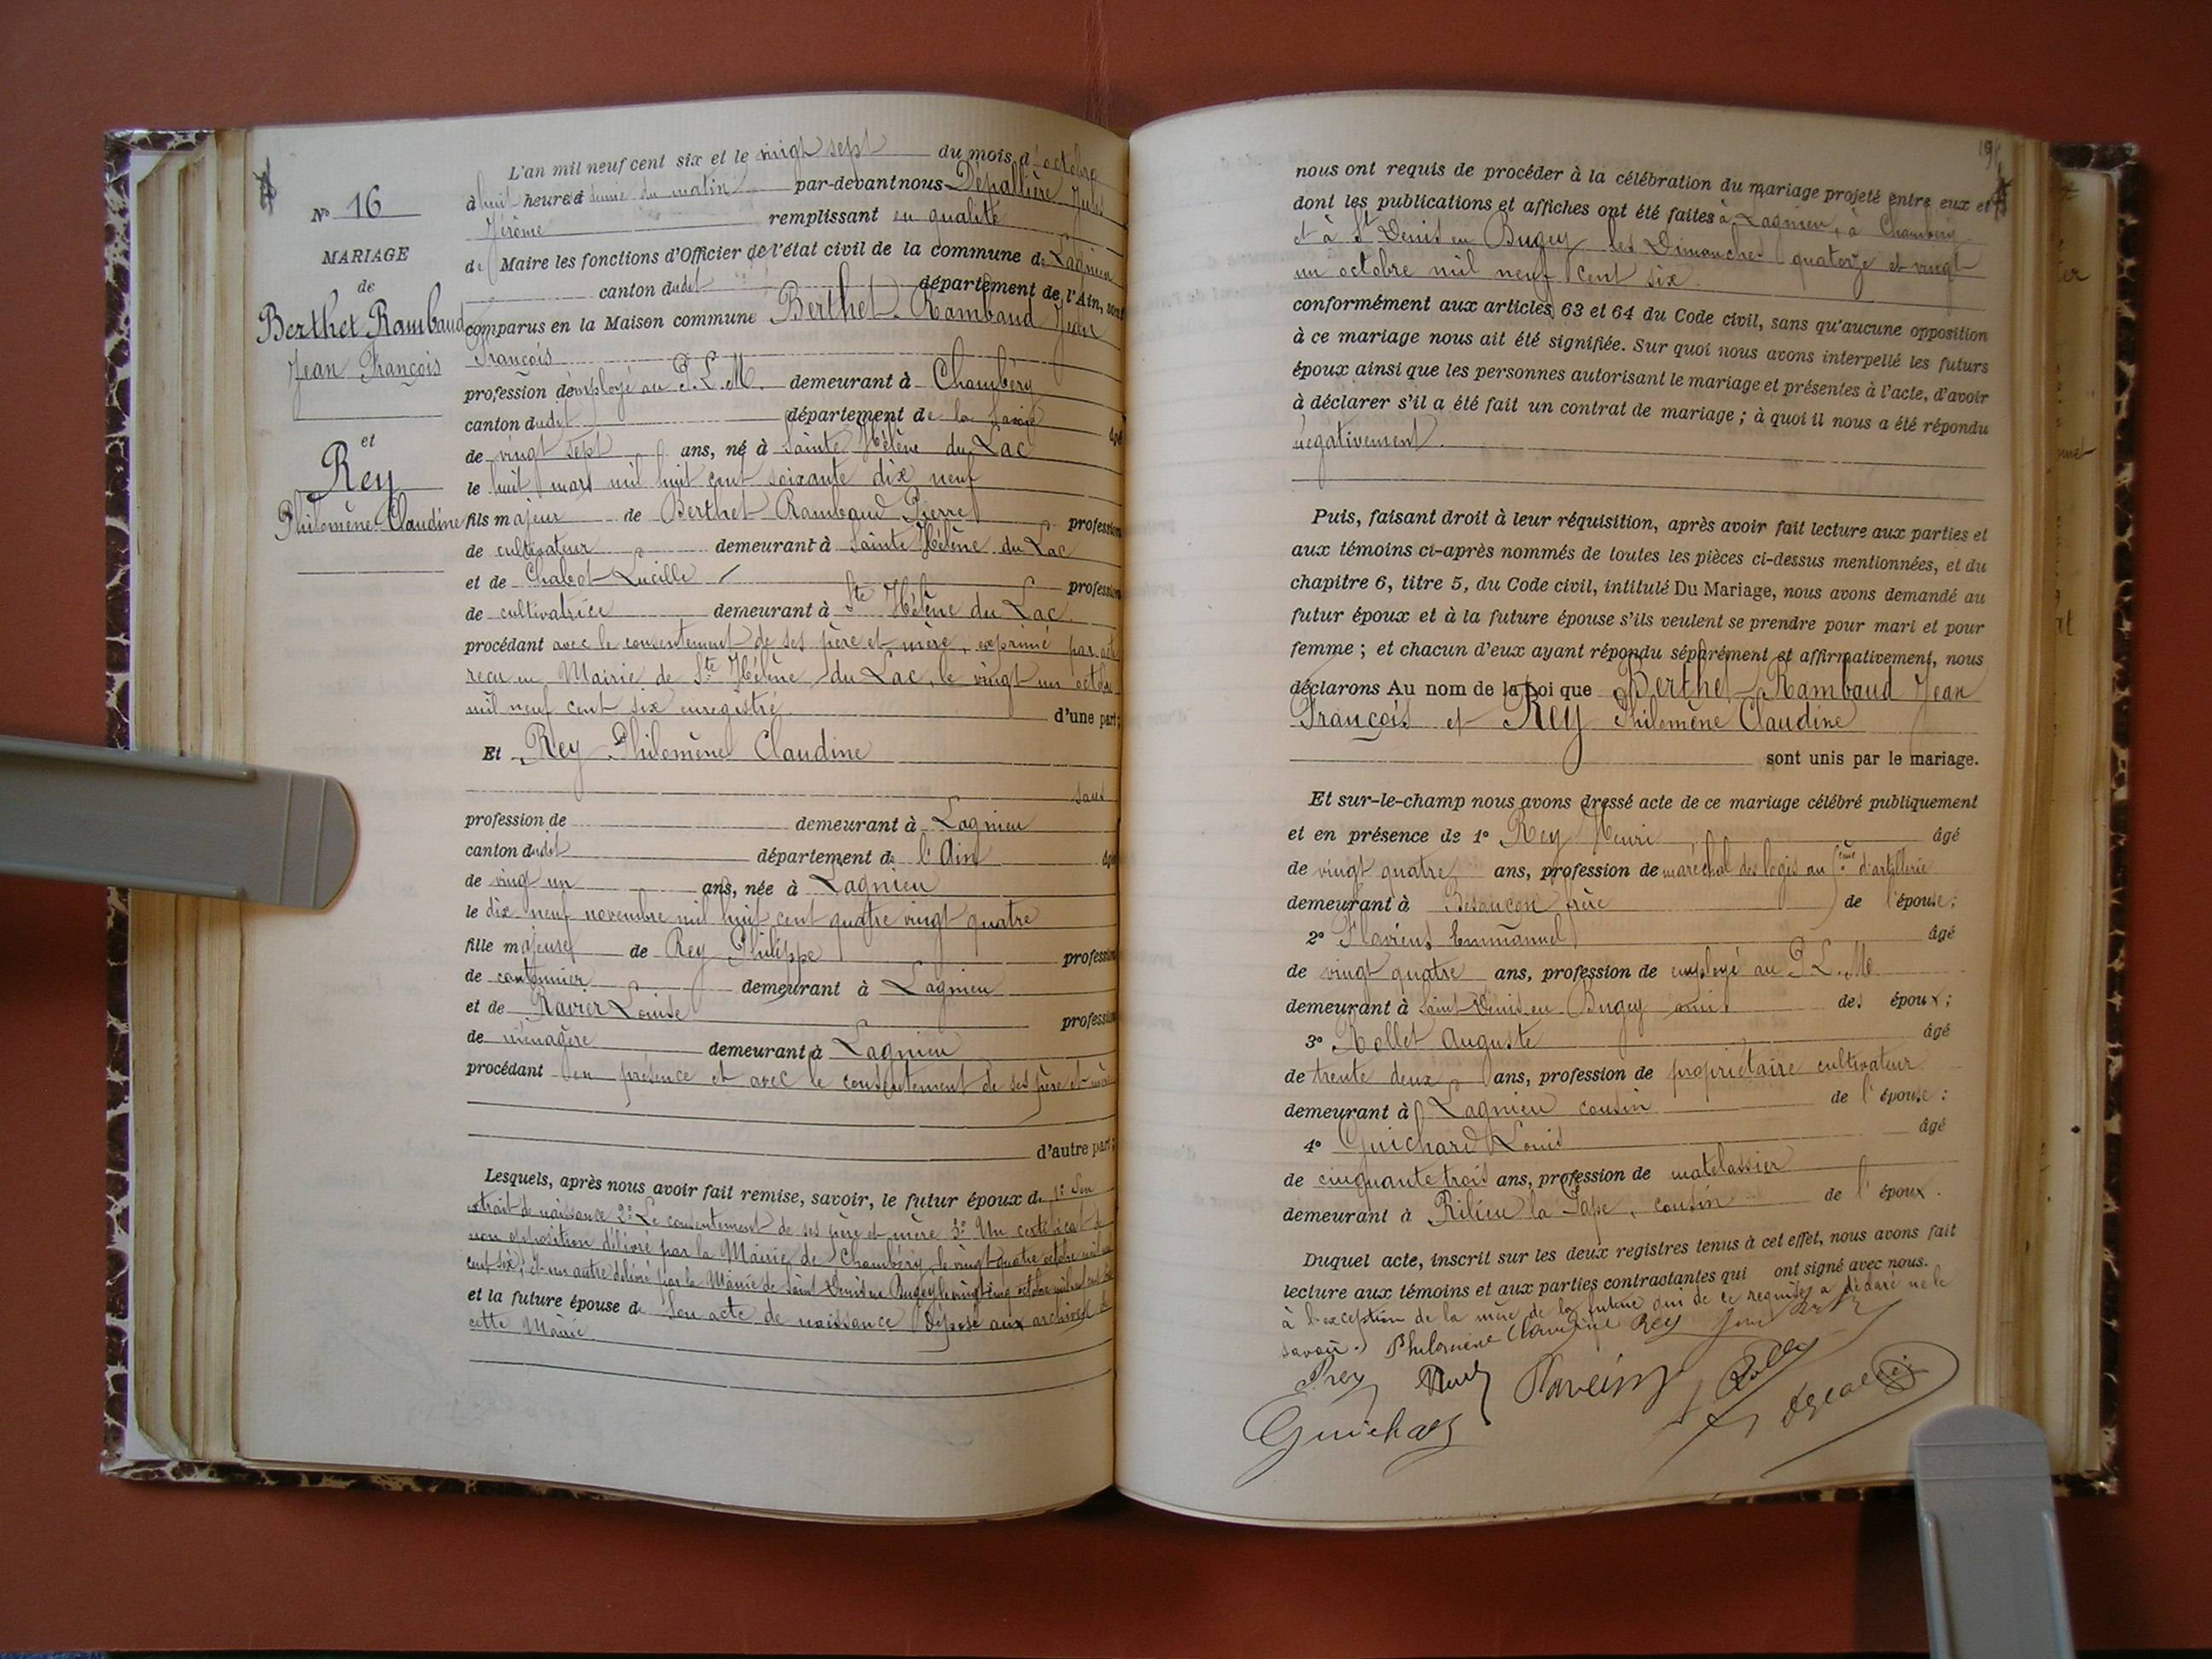 N° 16
MARIAGE
de
Berthet Rambaud
Jean François
et
Rey
Philomène Claudine
L'an mil neuf cent six et le vingt sept du mois d'octobre
à huit heures et demie du matin par-devant nous Dépallière Jules
Jérôme remplissant en qualité
de Maire les fonctions d'Officier de l'état civil de la commune de Lagnieu
canton dudit département de l'Ain, sont
comparus en la Maison commune Berthet-Rambaud Jean
François
profession d'employé au P.L.M. demeurant à Chambéry
canton dudit département de la Savoie âgé
de vingt sept ans, né à Sainte Hélène du Lac
le huit mars mil huit cent soixante dix neuf
fils majeur de Berthet Rambaud Pierre profession
de cultivateur demeurant à Sainte Hélène du Lac
et de Lucille profession
de cultivatrice demeurant à Ste Hélène du Lac
procédant avec le consentement de ses père et mère, exprimé par acte
reçu en Mairie de Ste Hélène du Lac, le vingt un octobre
mil neuf cent six enregistré d'une part;
Et Rey Philomène Claudine
sans
profession de demeurant à Lagnieu
canton dudit département de l'Ain âgé
de vingt un ans, née à Lagnieu
le dix neuf novembre mil huit cent quatre vingt quatre
fille majeure de Rey Philippe profession
de cantonnier demeurant à Lagnieu
et de Ravier Louise profession
de ménagère demeurant à Lagnieu
procédant en présence et avec le consentement de ses père et mère
d'autre part;
Lesquels, après nous avoir fait remise, savoir, le futur époux de 1° Son
extrait de naissance 2° Le consentement de ses père et mère 3° Un certificat de
non opposition délivré par la Mairie de Chambéry, le vingt quatre octobre mil neuf
cent six, et un autre délivré par la Mairie de Saint Denis en Bugey le vingt cinq octobre mil neuf cent six
et la future épouse de Son acte de naissance déposé aux archives de
cette Mairie
nous ont requis de procéder à la célébration du mariage projeté entre eux et
dont les publications et affiches ont été faites à Lagnieu, à Chambéry
et à St Denis en Bugey les Dimanches quatorze et vingt
un octobre mil neuf cent six.
conformément aux articles 63 et 64 du Code civil, sans qu'aucune opposition
à ce mariage nous ait été signifiée. Sur quoi nous avons interpellé les futurs
époux ainsi que les personnes autorisant le mariage et présentes à l'acte, d'avoir
à déclarer s'il a été fait un contrat de mariage ; à quoi il nous a été répondu
négativement.
Puis, faisant droit à leur réquisition, après avoir fait lecture aux parties et
aux témoins ci-après nommés de toutes les pièces ci-dessus mentionnées, et du
chapitre 6, titre 5, du Code civil, intitulé Du Mariage, nous avons demandé au
futur époux et à la future épouse s'ils veulent se prendre pour mari et pour
femme ; et chacun d'eux ayant répondu séparément et affirmativement, nous
déclarons Au nom de la Loi que Berthet-Rambaud Jean
François et Rey Philomène Claudine
sont unis par le mariage.
Et sur-le-champ nous avons dressé acte de ce mariage célébré publiquement
et en présence de 1° Rey Henri âgé
de vingt quatre ans, profession de maréchal des logis au d'artillerie
demeurant à Besançon frère de l'épouse;
2° Flaviens Emmanuel âgé
de vingt quatre ans, profession de employé au P.L.M.
demeurant à Saint-Denis en Bugey ami des époux;
3° Rollet Auguste âgé
de trente deux ans, profession de propriétaire cultivateur
demeurant à Lagnieu cousin de l'épouse;
4° Guichard Louis âgé
de cinquante trois ans, profession de matelassier
demeurant à Rilieu la Pape, cousin de l'époux.
Duquel acte, inscrit sur les deux registres tenus à cet effet, nous avons fait
lecture aux témoins et aux parties contractantes qui ont signé avec nous.
à l'exception de la mère de la future qui de ce requise a déclaré ne le
savoir. Philomène Claudine Rey
Rey
Guichard